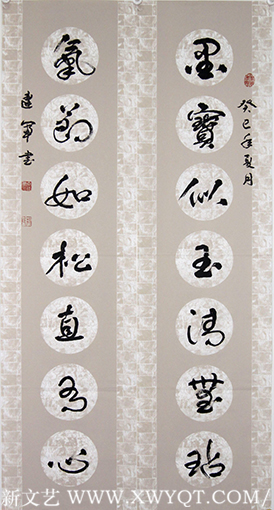 癸巳年夏月
墨寶似玉清無玷
氣節如松直心
建軍書
新文艺 WWW.XWYQT.COM/